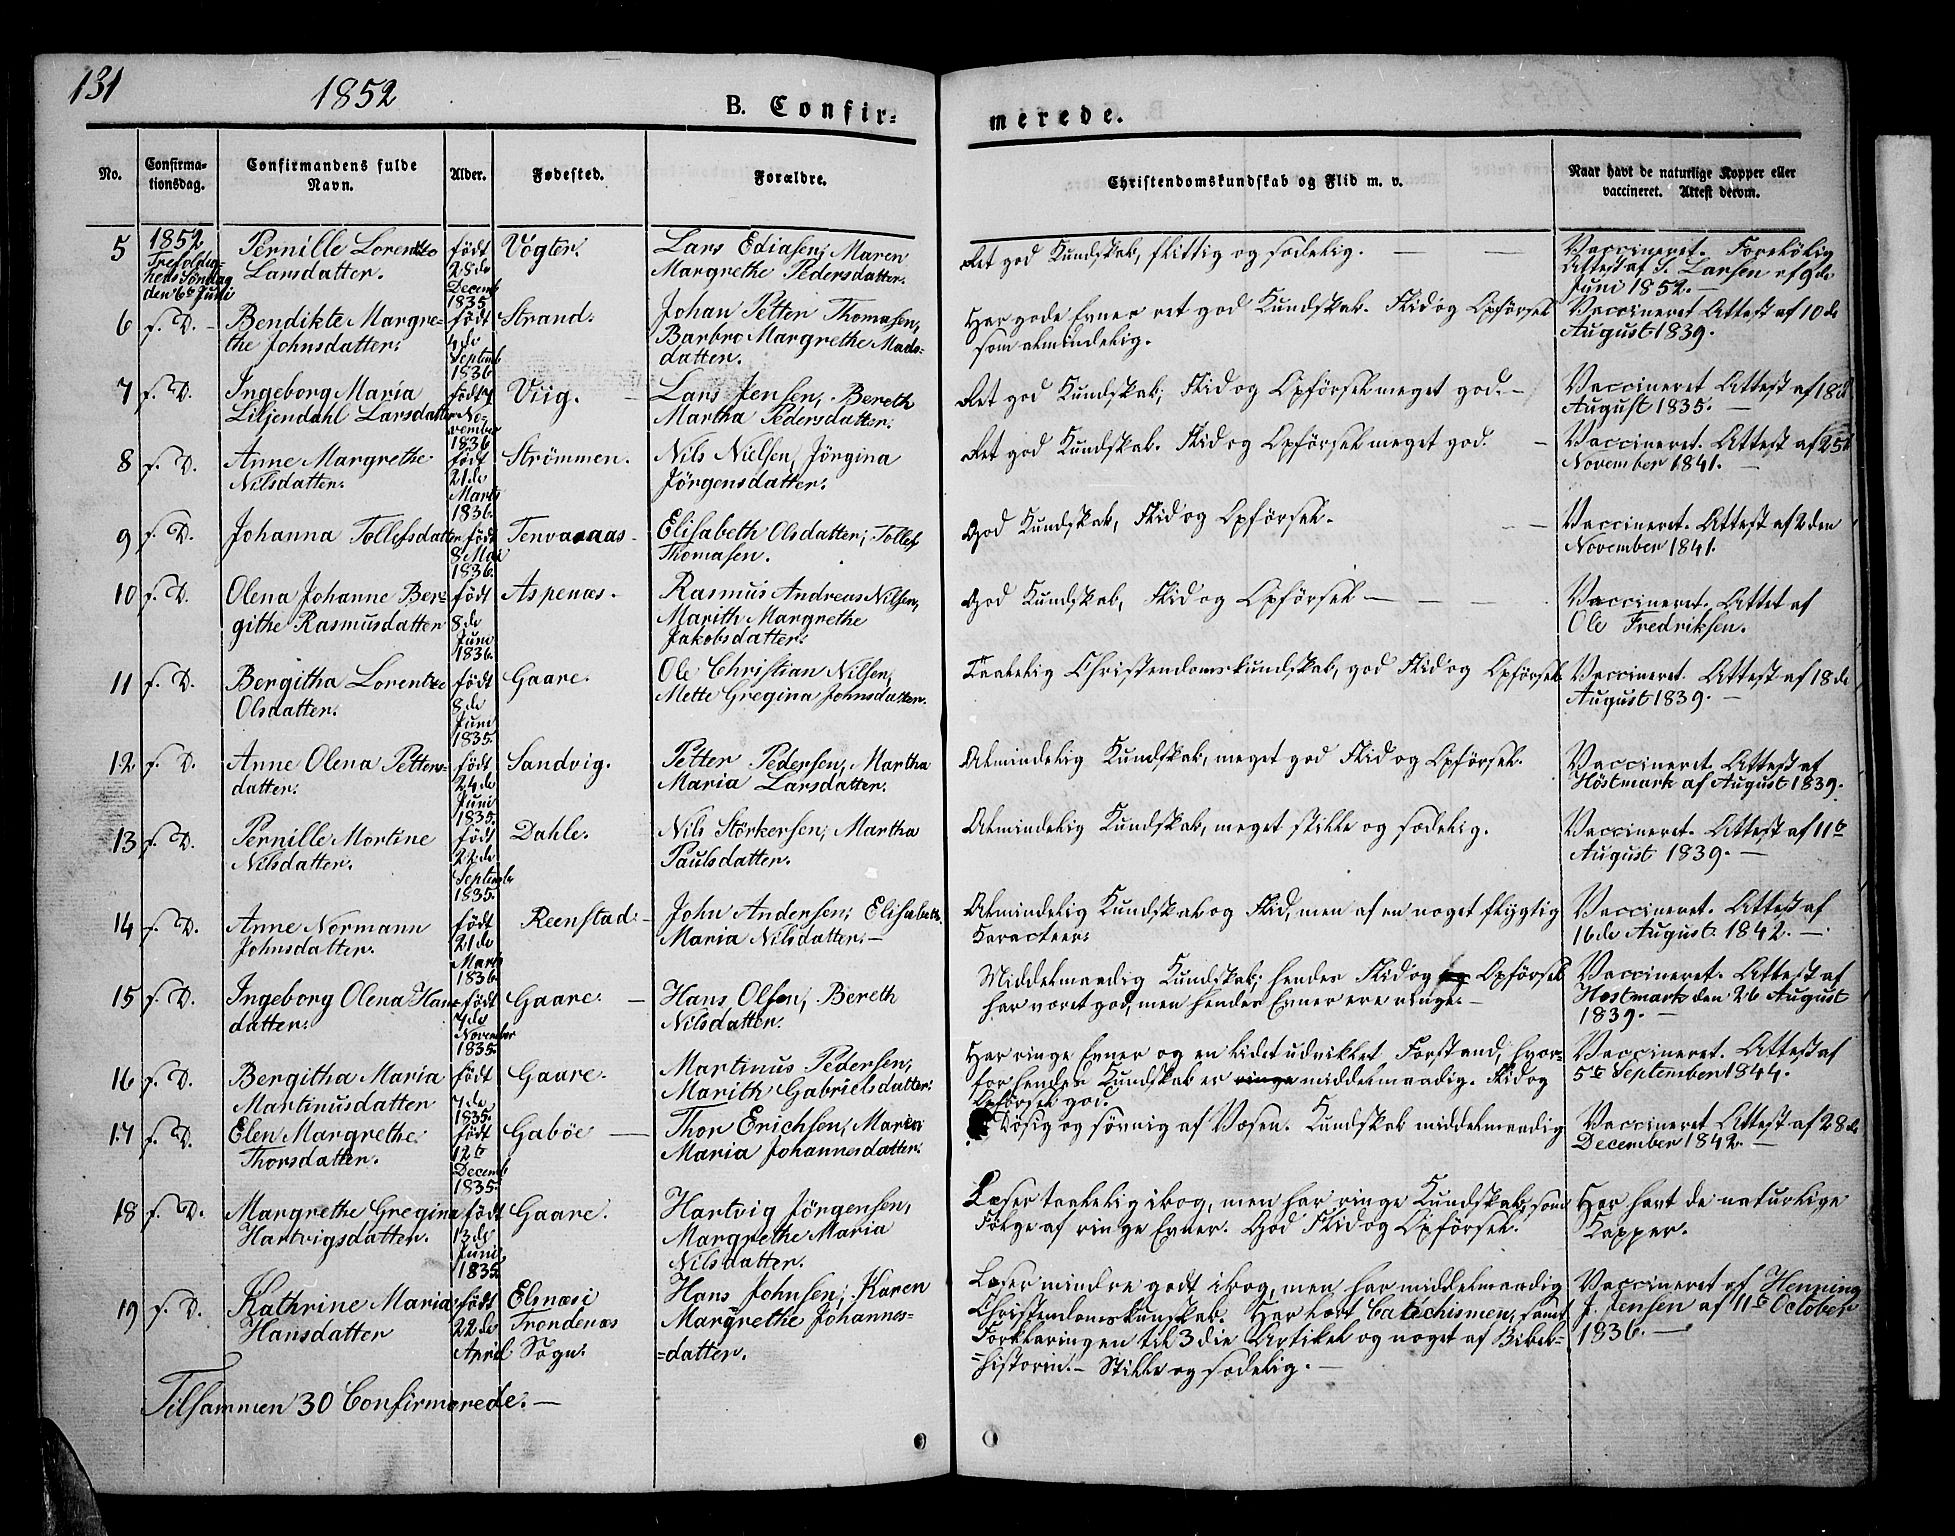 131
1852
B. Confir-
merede.
No.
Confirma-
tionsdag.
Confirmandens fulde
Navn.
Alder.
Fødested.
Forældre.
Christendomskundskab og Flid m. v.
Naar havt de naturlige Kopper eller
vaccineret. Attest derom.
5
1852
Trefoldig-
heds Søndag
den 6te Juni
Pernille Lorentze
Larsdatter.
født
28de
Decemb
1835
Vogter.
Lars Ediasen, Maren
Margrethe Pedersdatter.
Ret god Kundskab, flittig og sædelig.
Vaccineret. Foreløbig
Attest af S. Larsen af 9de
Juni 1852.
6
f. D.
Bendikte Margre-
the Johnsdatter.
født
4de
Septemb
1836
Strand.
Johan Petter Thomasen,
Barbro Margrethe Mads-
datter.
Har gode Evner ret god Kundskab. Flid og Opførsel
som almindelig.
Vaccineret Attest af 10de
August 1839.
7
f. D.
Ingeborg Maria
Liljendahl Larsdatter
født
No-
vember
1836
Viig.
Lars Jensen, Bereth
Martha Pedersdatter.
Ret god Kundskab, Flid og Opførsel meget god.
Vaccineret Attest af 18d
August 1835.
8
f. D.
Anne Margrethe
Nilsdatter.
født
21de
Marts
1836.
Strømmen.
Nils Nielsen, Jörgina
Jörgensdatter.
Ret god Kundskab. Flid og Opførsel meget god.
Vaccineret. Attest af 25d
November 1841.
9
f. D.
Johanna Tollefsdatter
født
8 Mai
1836.
Tenvasaas
Elisabeth Olsdatter, Tollef
Thomasen.
God Kundskab, Flid og Opførsel.
Vaccineret. Attest af 2den
November 1841.
10
f. D.
Olena Johanne Ber-
githe Rasmusdatter
født
8de
Juni
1836.
Aspenæs.
Rasmus Andreas Nilsen,
Marith Margrethe
Jakobsdatter.
God Kundskab, Flid og Opførsel
Vaccineret. Attet af
Ole Fredriksen.
11
f. D.
Bergitha Lorentze
Olsdatter.
født
8de
Juni
1835.
Gaare.
Ole Christian Nilsen,
Mette Gregina Johnsdatter.
Taalelig Christendomskundskab, god Flid og Opførsel.
Vaccineret. Attest af 18de
August 1839.
12
f. D.
Anne Olena Petters-
datter.
født
24de
Juni
1835.
Sandvig.
Petter Pedersen, Martha
Maria Larsdatter.
Almindelig Kundskab, meget god Flid og Opførsel.
Vaccineret. Attest af
Höstmark af August 1839.
13
f. D.
Pernille Mortine
Nilsdatter.
født
22de
Septemb
1835.
Dahle.
Nils Störkersen, Martha
Paulsdatter.
Almindelig Kundskab, meget stille og sædelig.
Vaccineret. Attest af 11te
August 1839.
14
f. D.
Anne Normann
Johnsdatter.
født
21de
Marts
1836
Reenstad.
John Andersen, Elisabeth
Maria Nilsdatter.
Almindelig Kundskab og Flid, men af en noget flygtig
Karacteer.
Vaccineret. Attest af
16de August 1842.
15
f. D.
Ingeborg Olena Hans-
datter.
født
7de
November
1835.
Gaare.
Hans Olsen, Bereth
Nilsdatter.
Middelmaadig Kundskab, hendes Flid og Opførsel
har været god, men hendes Evner ere ringe.
Vaccineret. Attest af
Høstmark den 26 August
1839.
16
f. D.
Bergitha Maria
Martinusdatter
født
7de
1835.
Gaare.
Martinus Pedersen,
Marith Gabrielsdatter.
Har ringe Evner og en lidet udviklet Forstand, hvor-
for hendes Kundskab er ringe middelmaadig. Flid og
Opførsel god.
Vaccineret. Attest af
5te September 1844.
17
f. D.
Elen Margrethe
Thorsdatter.
født
12te
Decemb
1835.
Gaböe
Thor Erichsen, Maren
Maria Johannesdatter.
Døsig og søvnig af Væsen. Kundskab middelmaadig
Vaccineret Attest af 28de
December 1842.
18
f. D.
Margrethe Gregina
Hartvigsdatter.
født
13de
Juni
1835
Gaare.
Hartvig Jörgensen,
Margrethe Maria
Nilsdatter.
Læser taalelig i bog, men har ringe Kundskab, som
Følge af ringe Evner. God Flid og Opførsel.
Har havt de naturlige
Kopper.
19
f. D.
Kathrine Maria
Hansdatter
født
22de
April
Elsnæs i
Trondenæs
Sogn.
Hans Johnsen, Karen
Margrethe Johannes-
=datter.
Læser mindre godt i bog, men har middelmaadig
Christendomskunskab. Har lært Catechismen, samt
Forklaringen til 3die Artikel og noget af Bibel-
=historien. - Stille og sædelig.
Vaccineret af Henning
J. Jensen af 11te October
1836.
Tilsammen 30 Confirmerede.